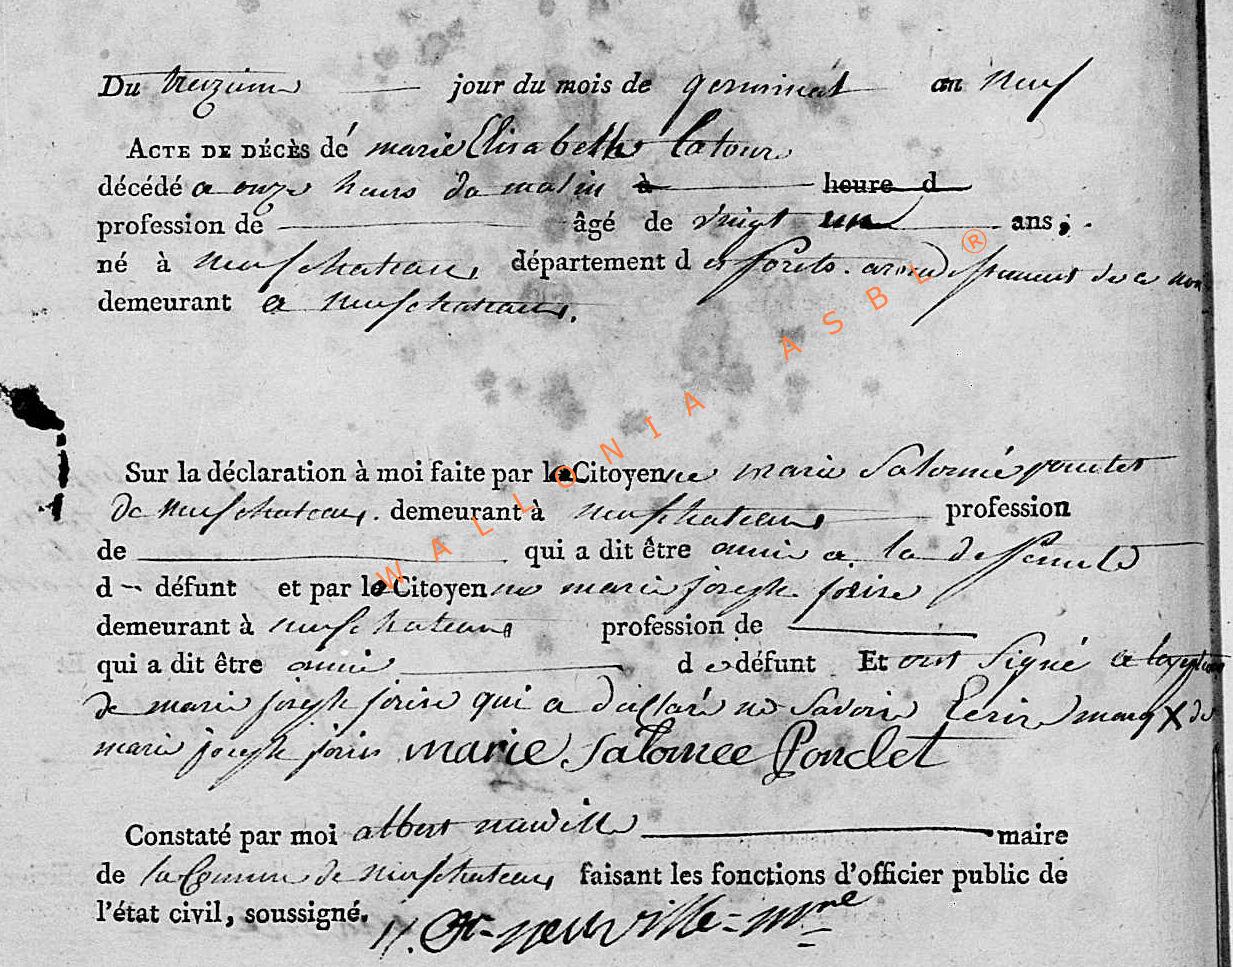 Du treizieme jour du mois de germinal an neuf
ACTE DE DÉCÈS dé marie Elisabethe Latour
décédé a onze heurs du matin à heure d
profession de âgé de vingt un ans ;
né à neufchateau, département d es forets. de ce nom
demeurant a neufchateau.
Sur la déclaration à moi faite par la Citoyenne marie Salomé poncelet
de neufchateau. demeurant à neufchateau profession
de qui a dit être amie a la deffunte
d défunt et par le Citoyenne marie joseph jorire
demeurant à neufchateau profession de
qui a dit être amie d e défunt Et ont signé a
de marie joseph jorire qui a declaré ne Savoir Ecrire marq X de
marie joseph joris marie Salomee Ponclet
Constaté par moi albert maire
de la Commune de neufchateau faisant les fonctions d'officier public de
l'état civil, soussigné. neuville = mre
WALLONIA ASBL ®